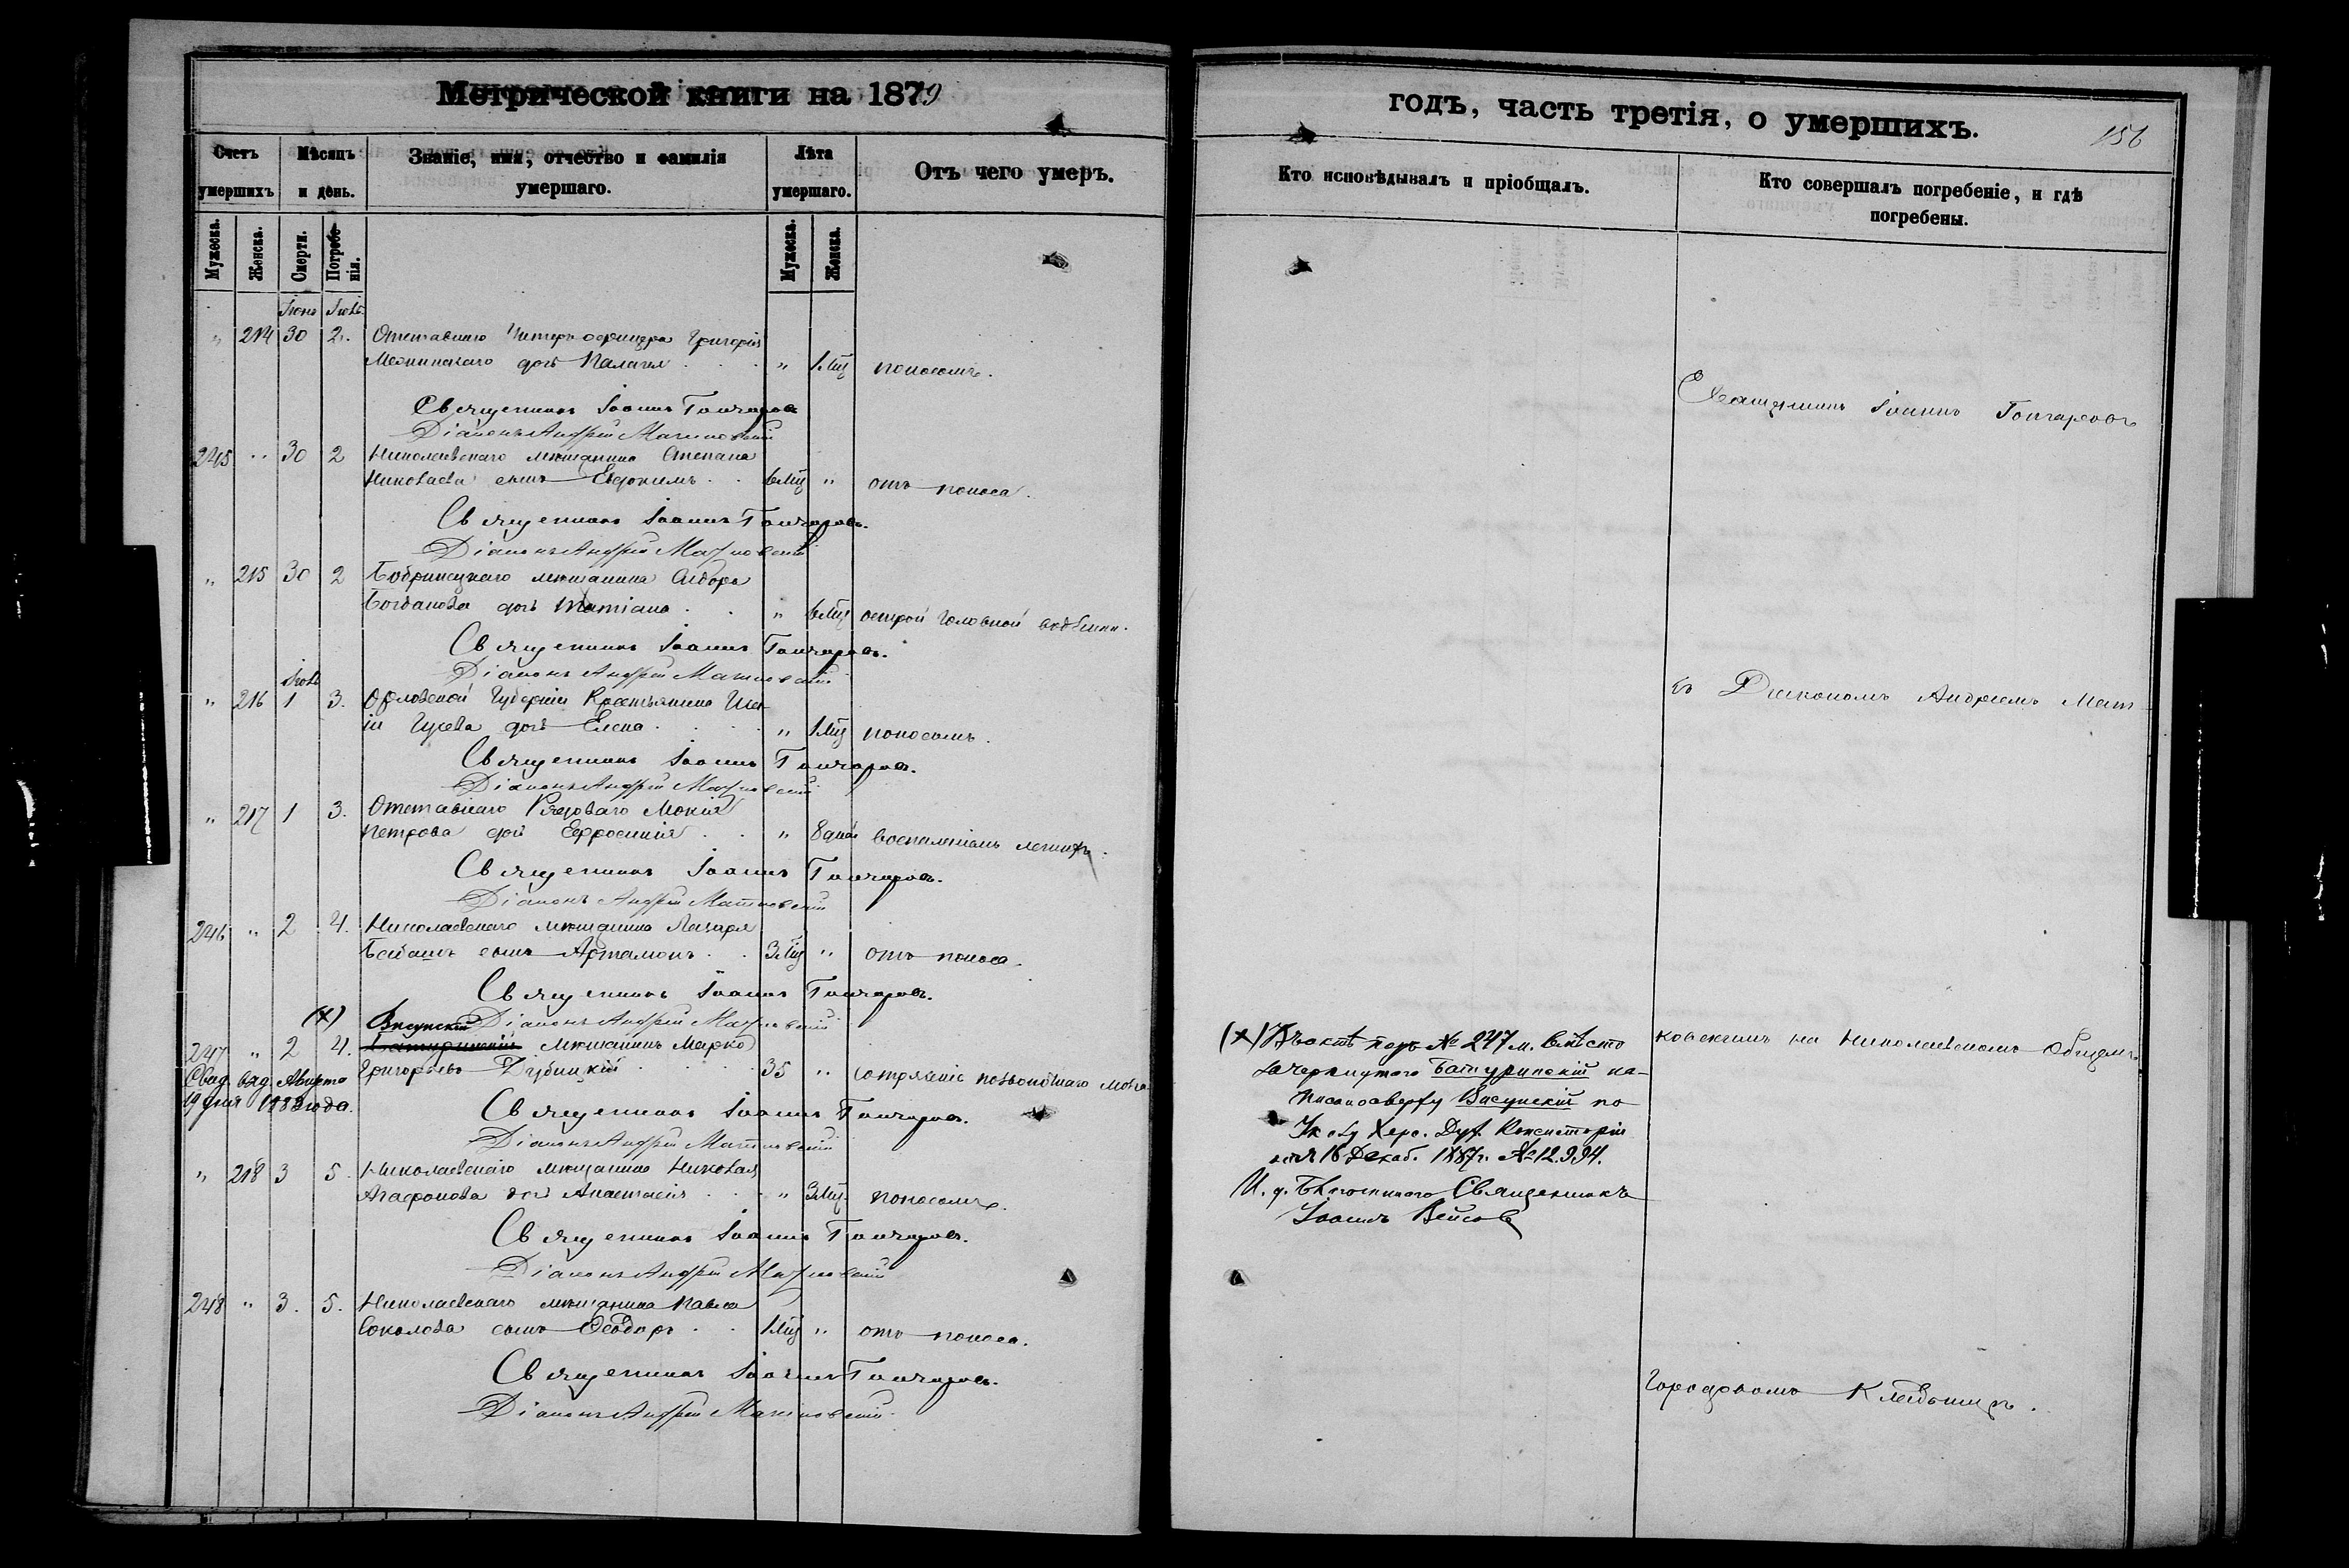 Метрической книги на 1879
Счетъ умершихъ
Мѣсяцъ и день.
Званіе, имя, отчество и фамилія умершаго.
Лѣта умершаго.
Отъ чего умеръ.
Мужеска.
Женска.
Смерти.
Погребенія.
Мужеска.
Женска.
Іюнь Іюль
" 214 30 2. Отставнаго Унтеръ офицера Григорія
дочь Палагея . . . " 1 Мц поносомъ.
Священникъ Іоаннъ Гончаровъ
Діаконъ Андрей Матковскій
245 " 30 2 Николаевскаго мѣщанина Степана
Николаева сынъ Евдокимъ . . 6 Мц " отъ поноса.
Священникъ Іоаннъ Гончаровъ.
Діаконъ Андрей Матковскій
" 215 30 2 Бобринецкаго мѣщанина Сидора
Богданова дочь Татіана . . " 6 Мц острой головной водянки.
Священникъ Іоаннъ Гончаровъ.
Діаконъ Андрей Матковскій
Іюль
" 216 1 3. Орловской Губерніи Крестьянина
Гусева дочь Елена . . . " 1 Мц поносомъ.
Священникъ Іоаннъ Гончаровъ.
Діаконъ Андрей Матковскій
" 217 1 3. Отставнаго Рядоваго Мокія
Петрова дочь Ефросинія . . " 8 дней воспаленіемъ легкихъ.
Священникъ Іоаннъ Гончаровъ.
Діаконъ Андрей Матковскій
246 " 2 4. Николаевскаго мѣщанина Лазаря
сынъ Артамонъ . . 3 Мц " отъ поноса.
Священникъ Іоаннъ Гончаровъ.
Діаконъ Андрей Матковскій
(х) Висунскій
247 " 2 4. Батуринскій Мѣщанинъ Марко
Григорьевъ Дубицкій . . . . 35 " сотрясеніе позвоночнаго мозга
Свид. выд. Августа
19 дня 1883 года.
Священникъ Іоаннъ Гончаровъ.
Діаконъ Андрей Матковскій
" 218 3 5. Николаевскаго мѣщанина Николая
Агафонова дочь Анастасія . . " 3 Мц поносомъ.
Священникъ Іоаннъ Гончаровъ.
Діаконъ Андрей Матковскій
248 " 3. 5. Николаевскаго мѣщанина Павла
Соколова сынъ Ѳеодоръ . . 1 Мц " отъ поноса.
Священникъ Іоаннъ Гончаровъ.
Діаконъ Андрей Матковскій
годъ, часть третія, о умершихъ.
156
Кто исповѣдывалъ и пріобщалъ.
Кто совершалъ погребеніе, и гдѣ погребены.
Священникъ Іоаннъ Гончаровъ
съ Діакономъ Андреемъ Мат-
ковскимъ на Николаевскомъ Общемъ
Городскомъ Кладбищѣ.
(х) Въ актѣ подъ № 247 м. вмѣсто
зачеркнутого Батуринскій на-
писано сверху Висунскій по
Указу Херс. Дух. Консисторіи
отъ 16 Декаб. 1887 г. № 12.994.
И. д. Благочиннаго Священникъ
Іоаннъ